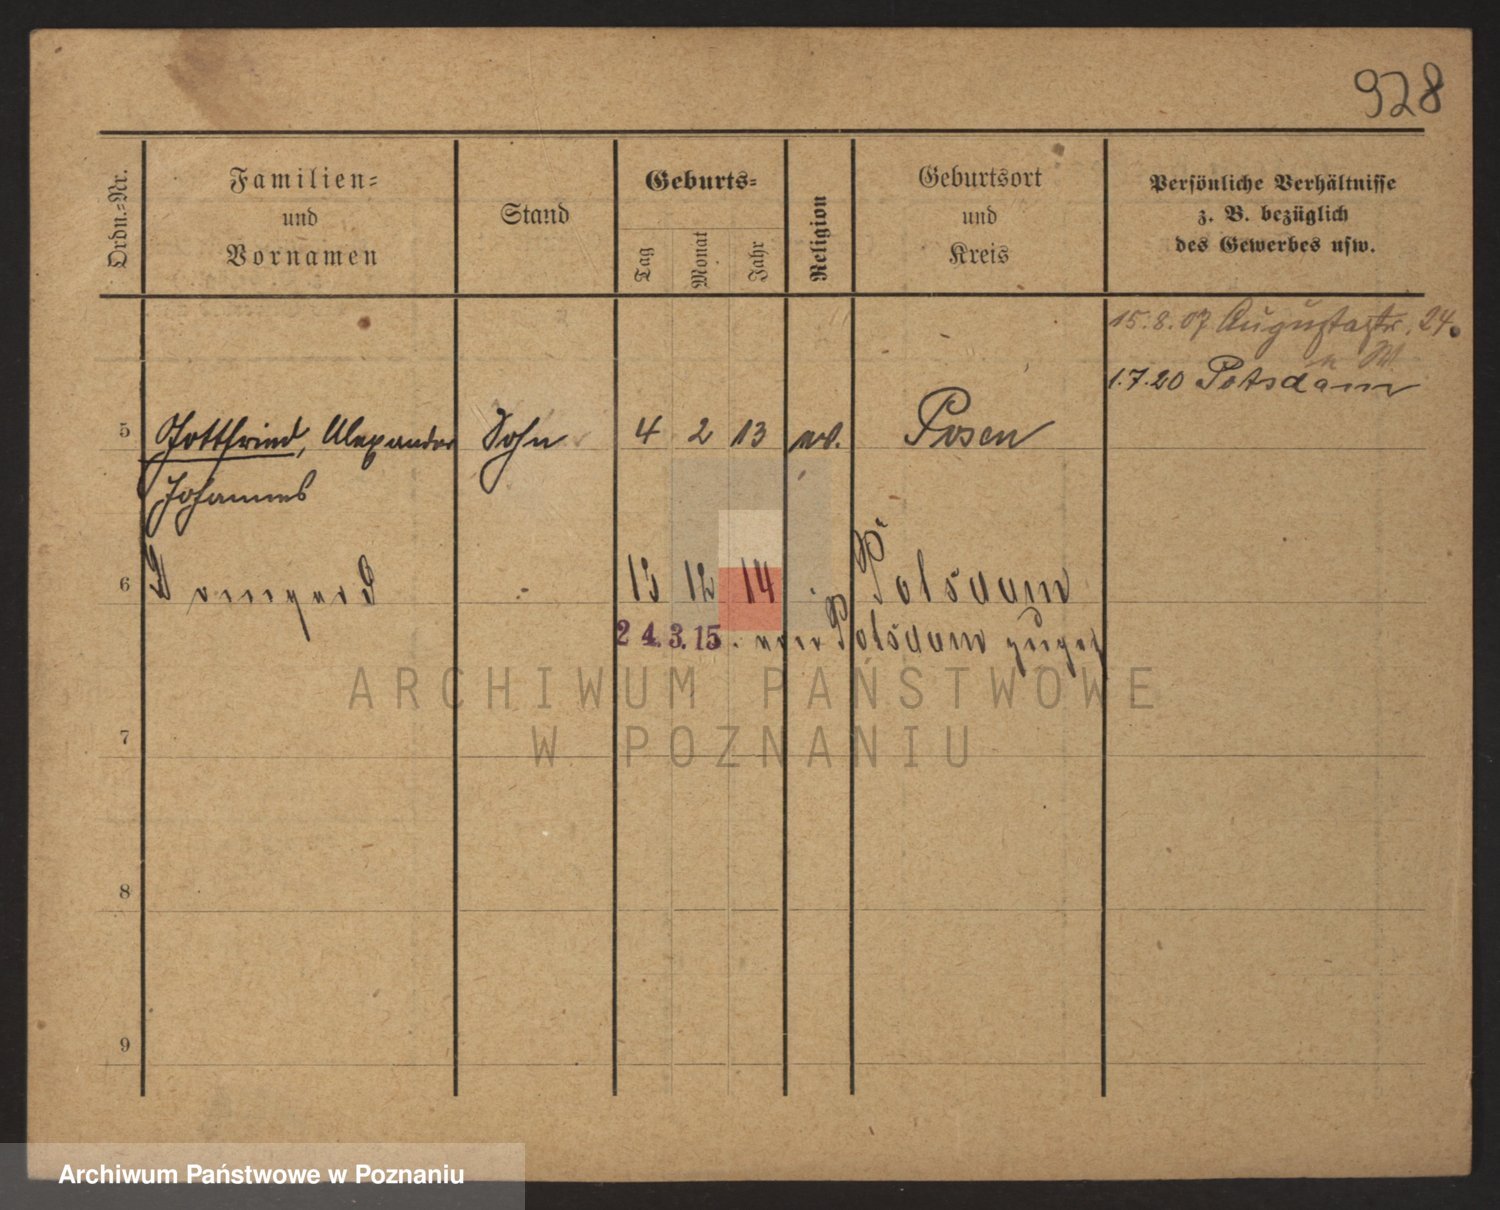 928
Ordn.-Nr.
Familien-
und
Vornamen
Stand
Geburts-
Tag
Monat
Jahr
Religion
Geburtsort
und
Kreis
Persönliche Verhältnisse
z. B. bezüglich
des Gewerbes usw.
15.8.07 Augustastr. 24.
1.7.20 Potsdam
5 Gottfried, Alexander Sohn 4 2 13 ev. Posen
Johannes
6 13 12 14 Potsdam
24.3.15. von Potsdam zugez
7
8
9
ARCHIWUM PAŃSTWOWE
W POZNANIU
Archiwum Państwowe w Poznaniu